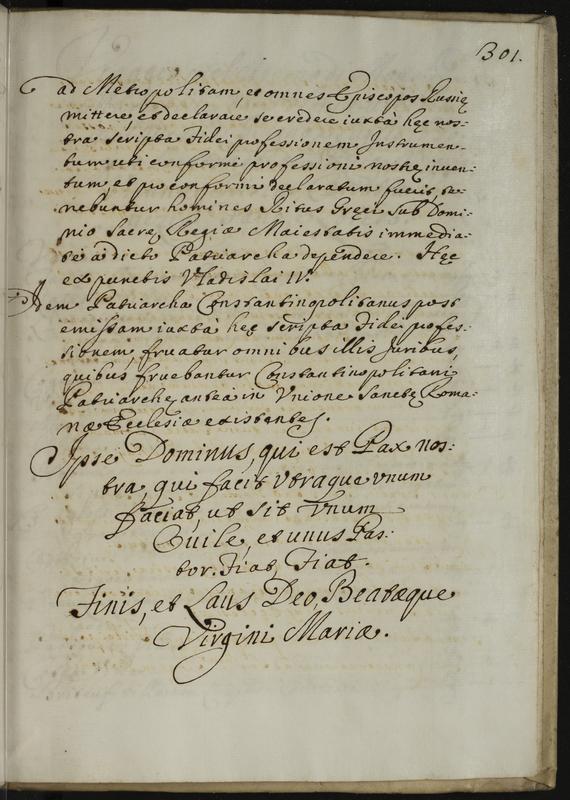 301.
ad Metropolitam, et omnes Episcopos Russię
mittere, et declarare se credere iuxtà hęc nos-
tra scripta Fidei professionem Instrumen-
tum uti conformi professioni nostrę inven-
tum et pro conformi declaratum fuerit, te-
nebuntur homines Ritus Gręci sub Domi-
nio Sacrę Regiae Maiestatis immedia-
tè à dicto Patriarcha dependere. Hęc
ex punctis Vladislai IV.
Idem Patriarcha Constantinopolitanus post
emissam iuxtà hęc scripta Fidei profes-
sionem, fruatur omnibus illis Juribus,
quibus fruebantur Constantinopolitani
Patriarchę antea in Unione Sanctę Roma-
næ Ecclesiæ existentes.
Ipse Dominus, qui est Pax nos:
tra, qui facit utraque unum
faciat, ut sit Unum
Ovile, et unus Pas:
tor. Fiat, Fiat.
Finis, et Laus Deo, Beatæque
Virgini Mariæ.